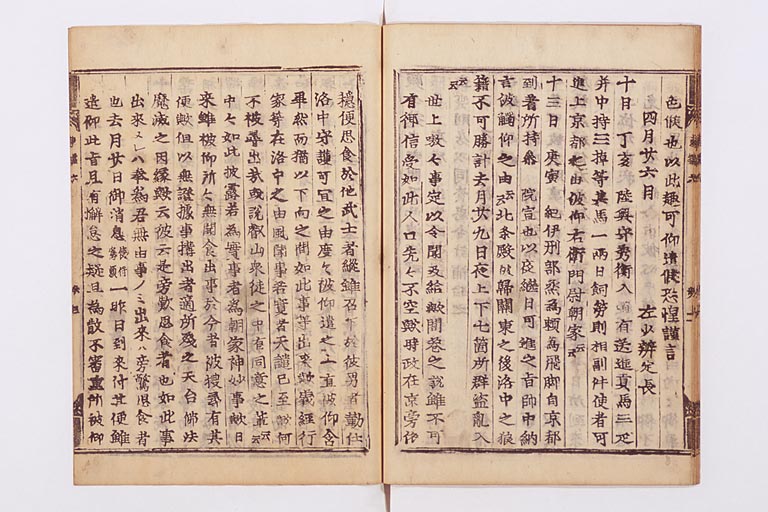 色候也以此趣可仰遣候恐惶謹言
四月廿六日 左少辨定長
十日 丁亥 陸奥守秀衡入道有送進貢馬三疋
并中持三掉等其馬一兩日飼勞則相副件使者可
進上京都之由被仰右衛門尉朝家云云
十三日 庚寅 紀伊刑部丞為頼為飛脚自京都
到着所持參 院宣也以夜繼日可進之旨帥中納
言被觸仰之由云云北条殿帰關東之後洛中之狼
籍不可勝計去月廿九日夜上下七箇所群盗乱入
云云
世上嗷々事定以令聞及給歟閭巷之説雖不可
有御信受如此人口先々不空歟時政在京旁依
穏便思食於他武士者縱雖召下於彼男者勤仕
洛中守護可宜之由度々被仰遣之上直被仰含
畢然而猶以下向之間如此事等出来歟義經行
家等在洛中之由風聞事若實者天譴已至歟何
不被尋出哉或説叡山衆徒之中有同意之輩云云
中々如此披露若為實事者為朝家神妙事歟日
来雖被仰所々無聞食出事於今者被捜尋有其
便歟但以無證據事搆出者適所殘之天台佛法
魔滅之因縁歟云彼云是旁歎思食者也如此事
出来ヌレハ奉為君無由事ノミ出来ハ旁驚思食者
也去月廿日御消息 一昨日到来付其便雖
遣仰此旨且有懈怠之疑且為散不審重所被仰